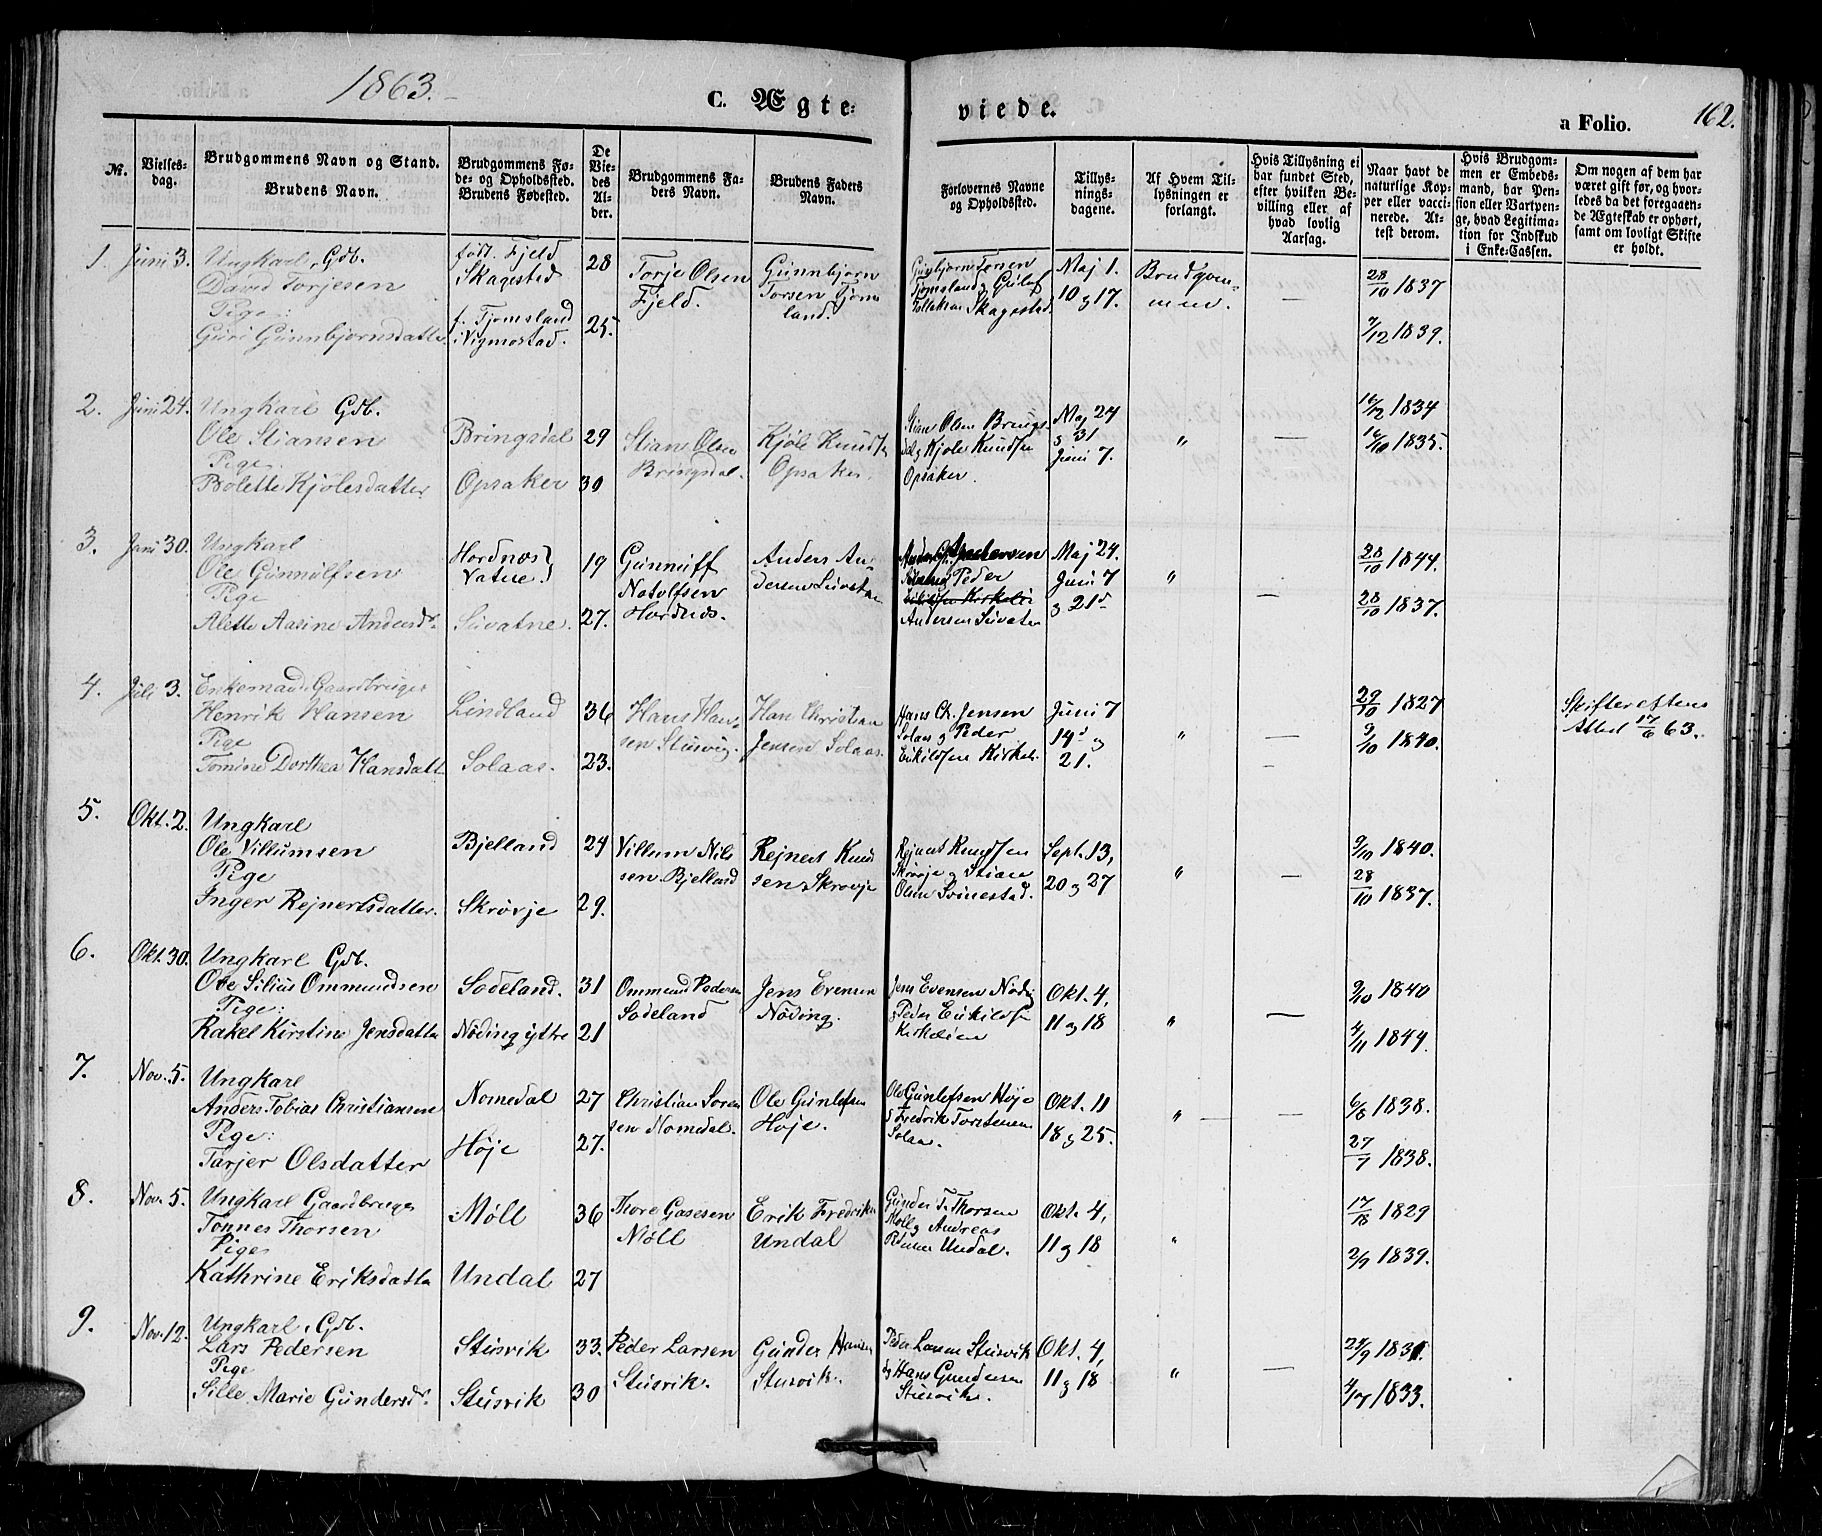 1863.
C. Ægte-
viede.
a Folio.
162.
Nr.
Vielses-
dag.
Brudgommens Navn og Stand.
Brudens Navn.
Brudgommens Fø-
de- og Opholdssted.
Brudens Fødested.
De
Vie-
des
Al-
der.
Brudgommens Fa-
ders Navn.
Brudens Faders
Navn.
Forlovernes Navne
og Opholdssted.
Tillys-
nings-
dagene.
Af Hvem Til-
lysningen er
forlangt.
Hvis Tillysning ei
har fundet Sted,
efter hvilken Be-
villing eller af
hvad lovlig
Aarsag.
Naar havt de
naturlige Kop-
per eller vacci-
nerede. At-
test derom.
Hvis Brudgom-
men er Embeds-
mand, har Pen-
sion eller Vartpen-
ge, hvad Legitima-
tion for Indskud
i Enke-Cassen.
Om nogen af dem har
været gift før, og hvor-
ledes da det foregaaen-
de Ægteskab er ophørt,
samt om lovligt Skifte
er holdt.
1. Juni 3.
Ungkarl, Gdb.
David Torjesen
Pige:
Guri Gunnbjornsdatter
født. Fjeld
Skagestad
f. Tjomsland
i Vigmostad.
28
25.
Torje Olsen
Fjeld.
Gunnbjorn
Torsen Tjoms
land.
Gunbjorn Torsen
Tjomsland og Gunluf
Tellaksen Skagestad.
Maj 1.
10 og 17.
Brudgom-
men.
—
28/10 1837
7/12 1839.
2. Juni 24.
Ungkarl Gdb.
Ole Stiansen
Pige.
Bolette Kjølesdatter
Bringsdal
Opsaker
29
30
Stian Olsen
Bringsdal.
Kjøle Knudsen
Opsaker.
Stian Olsen Brings
dal og Kjøle Knudsen
Opsaker.
Maj 24
o 31
Juni 7.
"
—
16/12 1834
16/10 1835.
3. Juni 30.
Ungkarl
Ole Gunnulfsen
Pige
Alette Aasine Andersd.
Hordnæs
Vatne.
Suvatne.
19
27.
Gunnulf
Natolfsen
Hordnæs.
Anders An-
dersen Suvatne
Peder
Andersen Suvatne
Maj 24.
Juni 7
og 21d
"
—
28/10 1844.
28/10 1837.
4. Juli 3.
Enkemand, Gaardbruger
Henrik Hansen
Pige
Tomine Dorthea Hansdatt.
Lindland
Solaas.
36
23.
Hans Han-
sen Stusvig.
Han Christian
Jensen Solaas.
Hans Ch. Jensen
Solaas og Peder
Eukildsen Kirkeh.
Juni 7
14d og
21.
"
—
29/10 1827
9/10 1840.
Skiftereftens
Attest 17/6 63.
5. Okt. 2.
Ungkarl
Ole Villumsen
Pige
Inger Rejnertsdatter.
Bjelland
Skrövje
24
29.
Villum Nils
sen Bjelland
Rejnert Knud
sen Skrövje
Rejnert Knudsen
Skrövje og Stian
Olsen Svinestad.
Sept. 13,
20 og 27
"
—
9/10 1840.
28/10 1837.
6. Okt. 30.
Ungkarl Gdb.
Ole Silius Ommundsen
Pige:
Rakel Kirstine Jensdatter
Sodeland.
Nöding ytre
31
21
Ommund Pedersen
Sodeland
Jens Evensen
Nöding.
Jens Evensen Nöding
og Peder Eukildsen
Kirkeheien
Okt. 4,
11 og 18
"
—
9/10 1840
4/11 1844.
7. Nov. 5.
Ungkarl
Anders Tobias Christiansen
Pige:
Tarjer Olsdatter
Nomedal
Höje
27
27.
Christian Soren
sen Nomedal.
Ole Gunlefsen
Höje.
Ole Gunlefsen Höje
og Fredrik Torstensen
Solaa.
Okt. 11
18 og 25.
"
—
6/8 1838.
27/7 1838.
8. Nov. 5
Ungkarl Gaardbruger
Tonnes Thorsen
Pige
Kathrine Eriksdatter
Möll
Undal
36
27
Thore Gasesen
Möll
Erik Fredriksen
Undal
Gunder T. Thorsen
Möll og Andreas
Pedersen Undal.
Okt. 4,
11 og 18
"
17/18 1829
2/9 1839.
9. Nov. 12.
Ungkarl, Gdb.
Lars Pedersen
Pige
Sille Marie Gundersd.
Stusvik
Stusvik
33.
30
Peder Larsen
Stusvik.
Gunder Hansen
Stusvik.
Peder Larsen Stusvik
og Hans Gundersen
Stusvik.
Okt. 4,
11 og 18
"
—
4/7 1833.